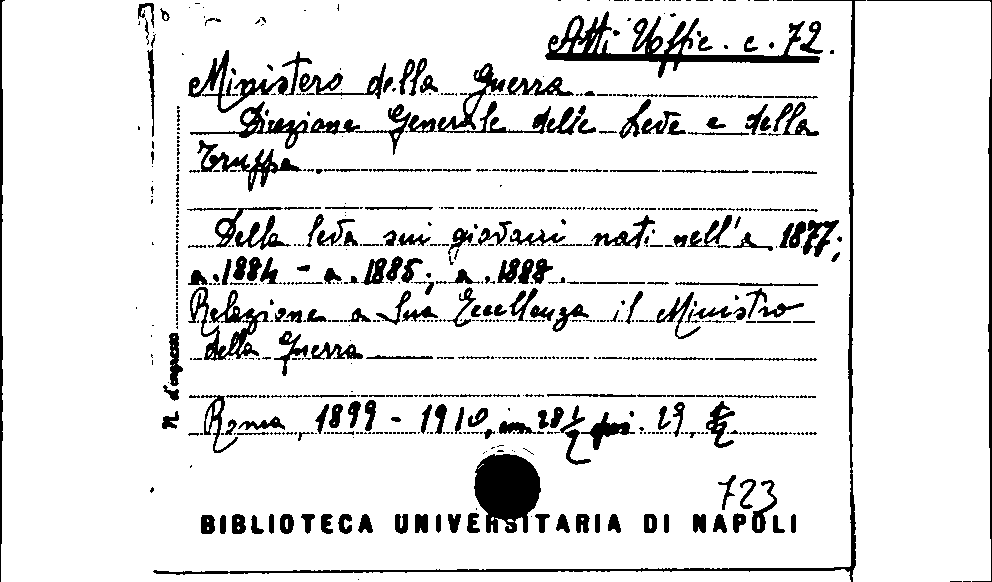 Atti Uffic. c. 72.
Ministero della Guerra.
Direzione Generale delle Leve e della
Truppa.
Della leva sui giovani nati nell'a. 1877;
a. 1884 - a. 1885; a. 1888.
Relazione a Sua Eccellenza il Ministro
della Guerra
N. d'ingresso
Roma, 1899 - 1910, in 28 1/2 29,
723
BIBLIOTECA UNIVERSITARIA DI NAPOLI